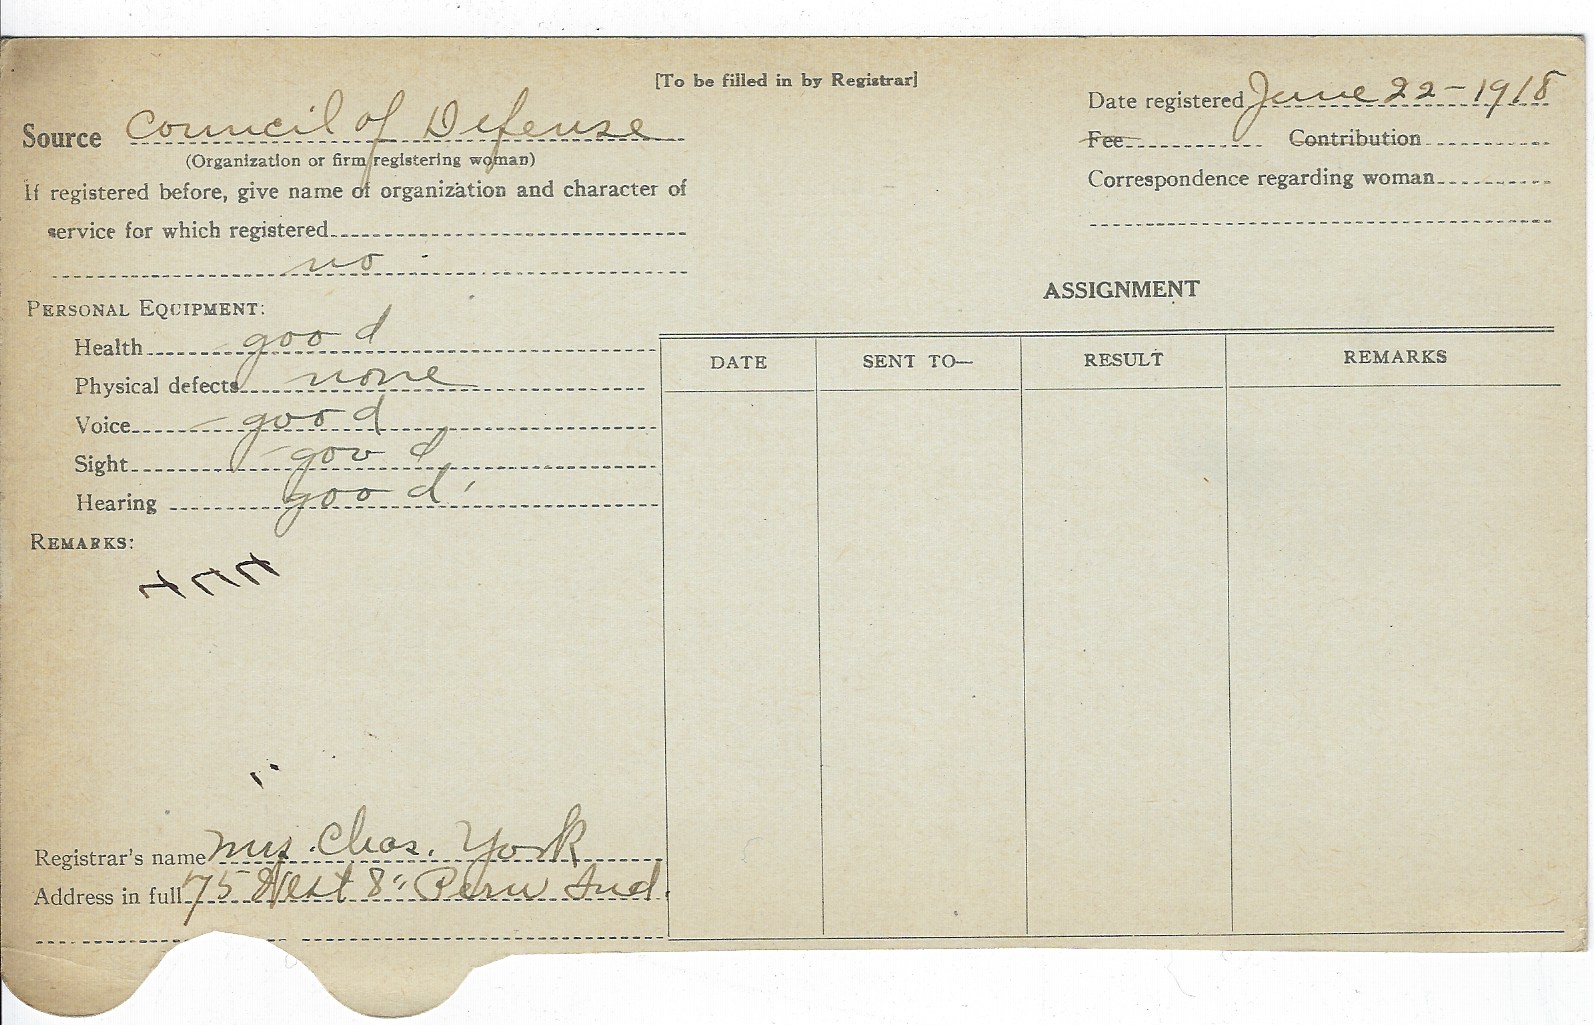 [To be filled in by Registrar]
Source Council of Defense
(Organization or firm registering woman)
If registered before, give name of organization and character of
service for which registered
no
PERSONAL EQUIPMENT:
Health good
Physical defects none
Voice good
Sight good
Hearing good
REMARKS:
Registrar's name Mrs. Chas. York
Address in full 75 West 8" Peru Ind.
Date registered June 22-1918
Fee Contribution
Correspondence regarding woman
ASSIGNMENT
DATE SENT TO— RESULT REMARKS